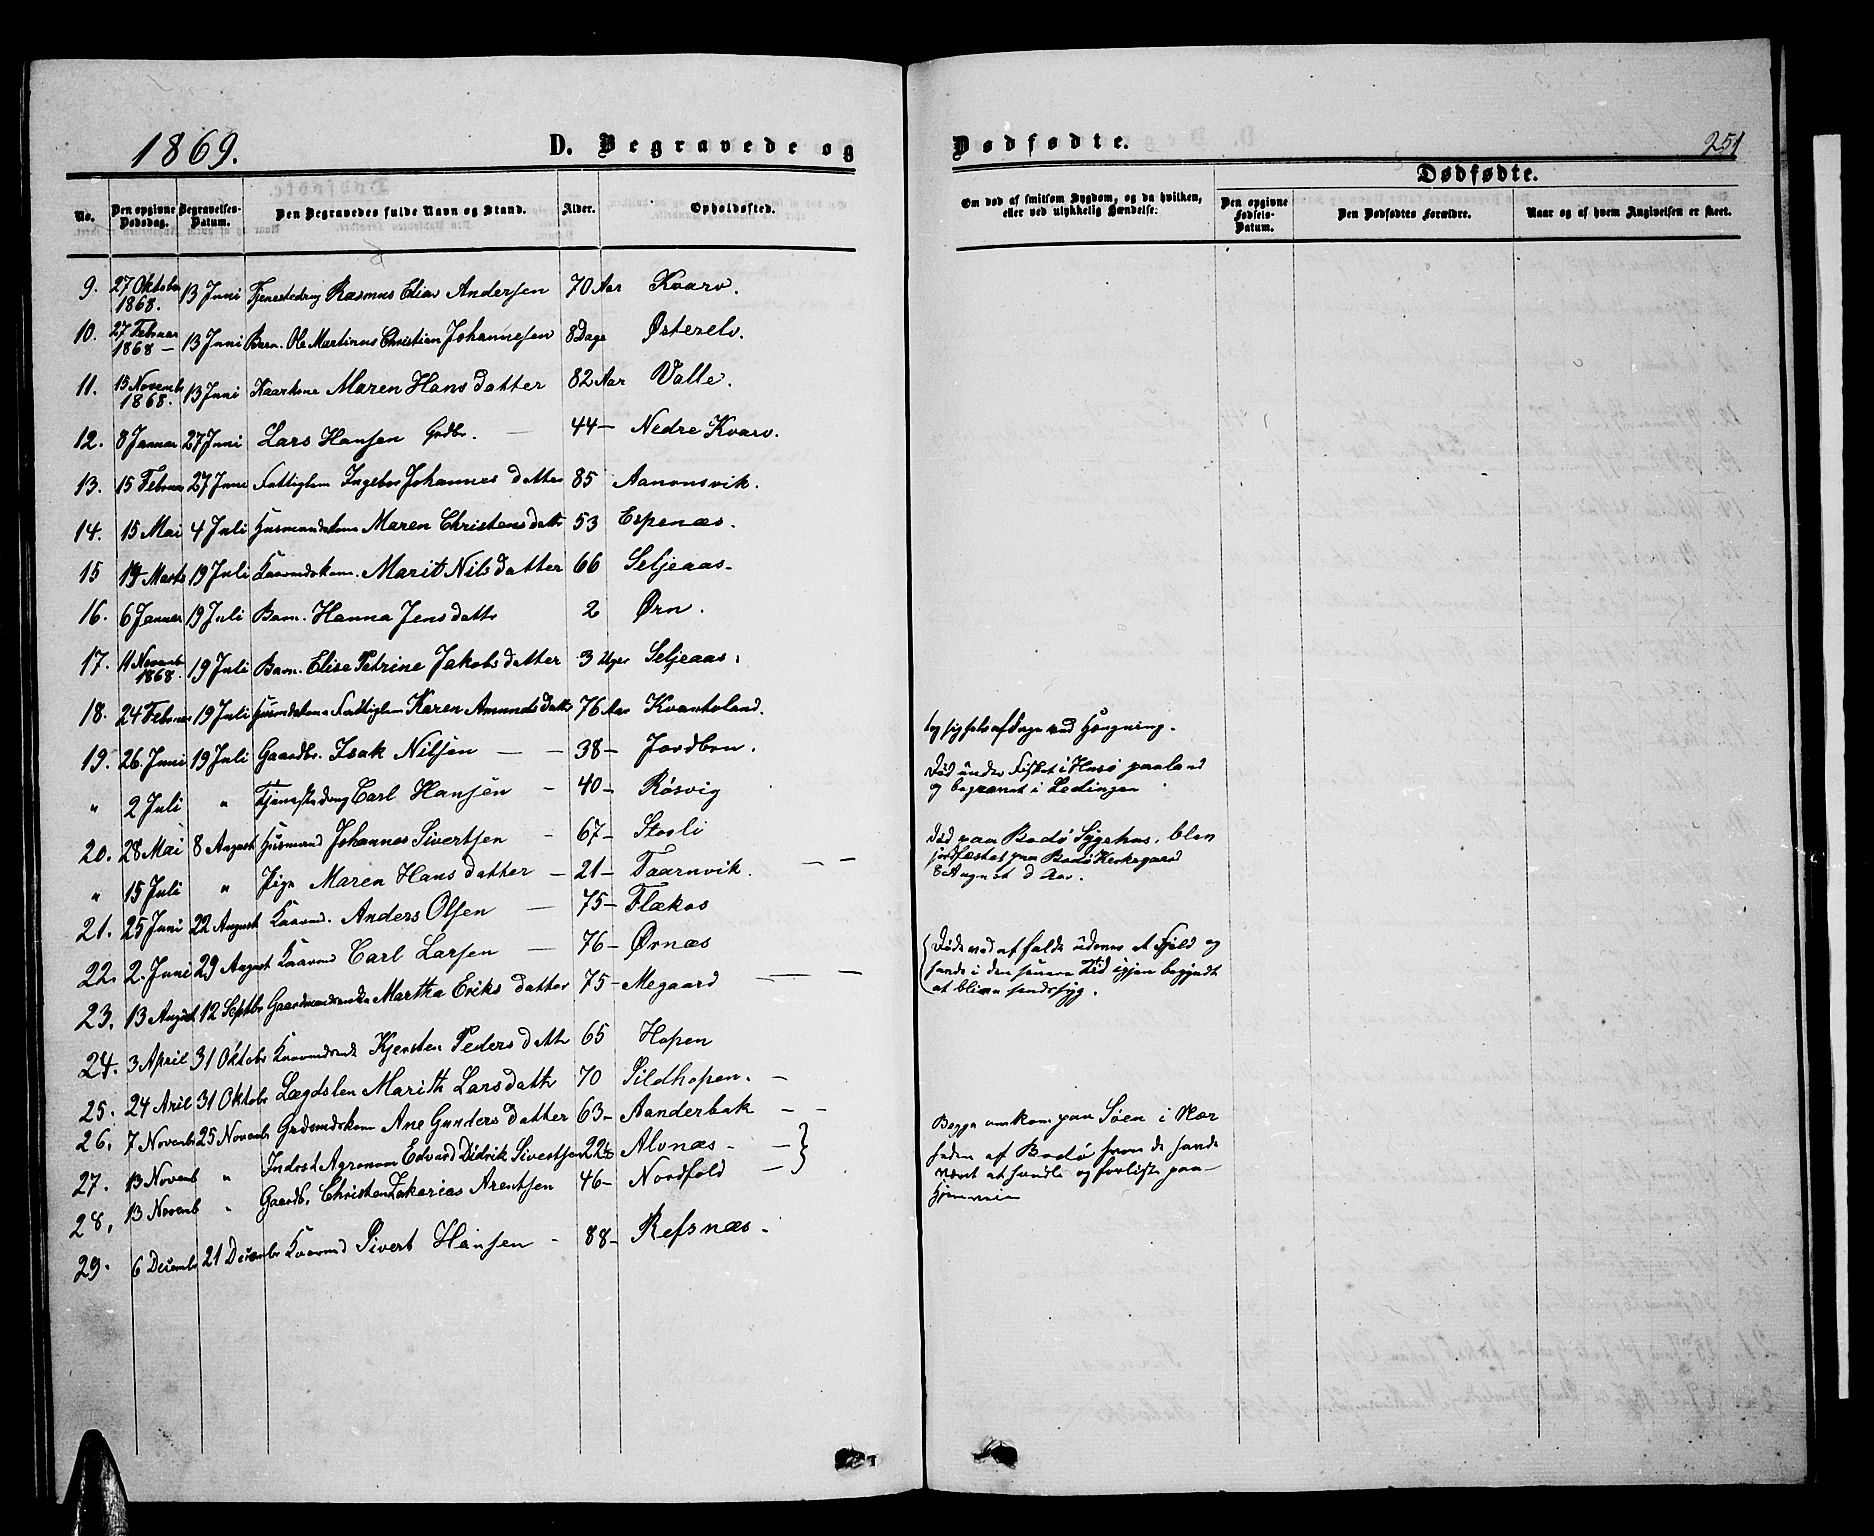 1869.
D. Begravede og
Dødfødte.
251
No.
Den opgivne Dødsdag.
Begravelses-Datum.
Den Begravedes fulde Navn og Stand.
Alder.
Opholdssted.
Om død af smitsom Sygdom, og da hvilken, eller ved ulykkelig Hændelse.
Dødfødte.
Den opgivne Fødsels-Datum.
Den Dødfødtes Forældre.
Naar og af hvem Angivelsen er skeet.
9. 27 Oktober 1868. 13 Juni Tjenestedreng Rasmus Elias Andersen 70 Aar Kvarv.
10. 27 Februar 1868 — 13 Juni Barn. Ole Martinus Christian Johannesen 8 Dage Østerelv.
11. 15 Novemb 1868. 13 Juni Kaarkone Maren Hansdatter 82 Aar Valle.
12. 8 Januar 27 Juni Lars Hansen Grdbr. — 44 — Nedre Kvarv.
13. 15 Februar 27 Juni Fattiglem Ingebor Johannesdatter 85 Aanonsvik.
14. 15 Mai 4 Juli Husmandskone Maren Christensdatter 53 Espenæs.
15 14 Marts 19 Juli Kaarmdskone. Marit Nilsdatter 66 Seljeaas.
16. 6 Januar 19 Juli Barn. Hanna Jensdatter 2 Ørn.
17. 11 Novemb 1868. 19 Juli Barn. Elise Petrine Jakobsdatter 3 Uger Seljeaas.
18. 24 Februar 19 Juli Fattiglem Karen Amundsdatter 76 Aar Kvantoland.
19. 26. Juni 19 Juli Gaardbr. Isak Nilsen — — 38 — Jordbrn.
tog sig selv af Dage ved Hængning.
" 2 Juli " Tjenestedreng Carl Hansen — 40 — Røsvig
Død under Fisket i Husø paaland
og begravet i Lødingen
20. 28 Mai 8 August Husmand Johannes Sivertsen — 67 — Stosli
" 15 Juli " Pige Maren Hansdatter — 21 — Taarnvik. — —
Død paa Bodø Sygehus, blev
jordfæstet paa Bodø Kirkegaard
8 August d Aar.
21. 25 Juni 22 August Kaarmd. Anders Olsen — 75 — Flækos
22. 2. Juni 29 August Kaarmd Carl Larsen — 76 — Ørnæs
23. 13 August 12 Septbr Gaardmandsenke Martha Eriksdatter 75 — Megaard — —
Døde ved at falde udover et Fjeld og
havde i den senere Tid igjen begyndt
at blive sindssyg.
24. 3 April 31 Oktobr Kjersten Pedersdatter 65 Hopen
25. 24 Aril 31 Oktobr Lægdslem Marith Larsdattr 70 Sildhopen. —
26. 7 Novembr 25 Novembr Grdmdskone Ane Gundersdatter 63 — Aanderbak — —
27. 13 Novemb " Indest Agronom Edvard Didrik Sivertsen 22½ Alvnæs — —
28. 13 Novemb " Gaardb. Christen Zakarias Arentsen 46 — Nordfold —
Begge omkom paa Søen i Nær
heden af Bodø hvor de havde
været at handle og forliste paa
Hjemveien
29. 6 Decembr 21 Decembr Kaarmd Sivert Hansen — 88 — Refsnæs.